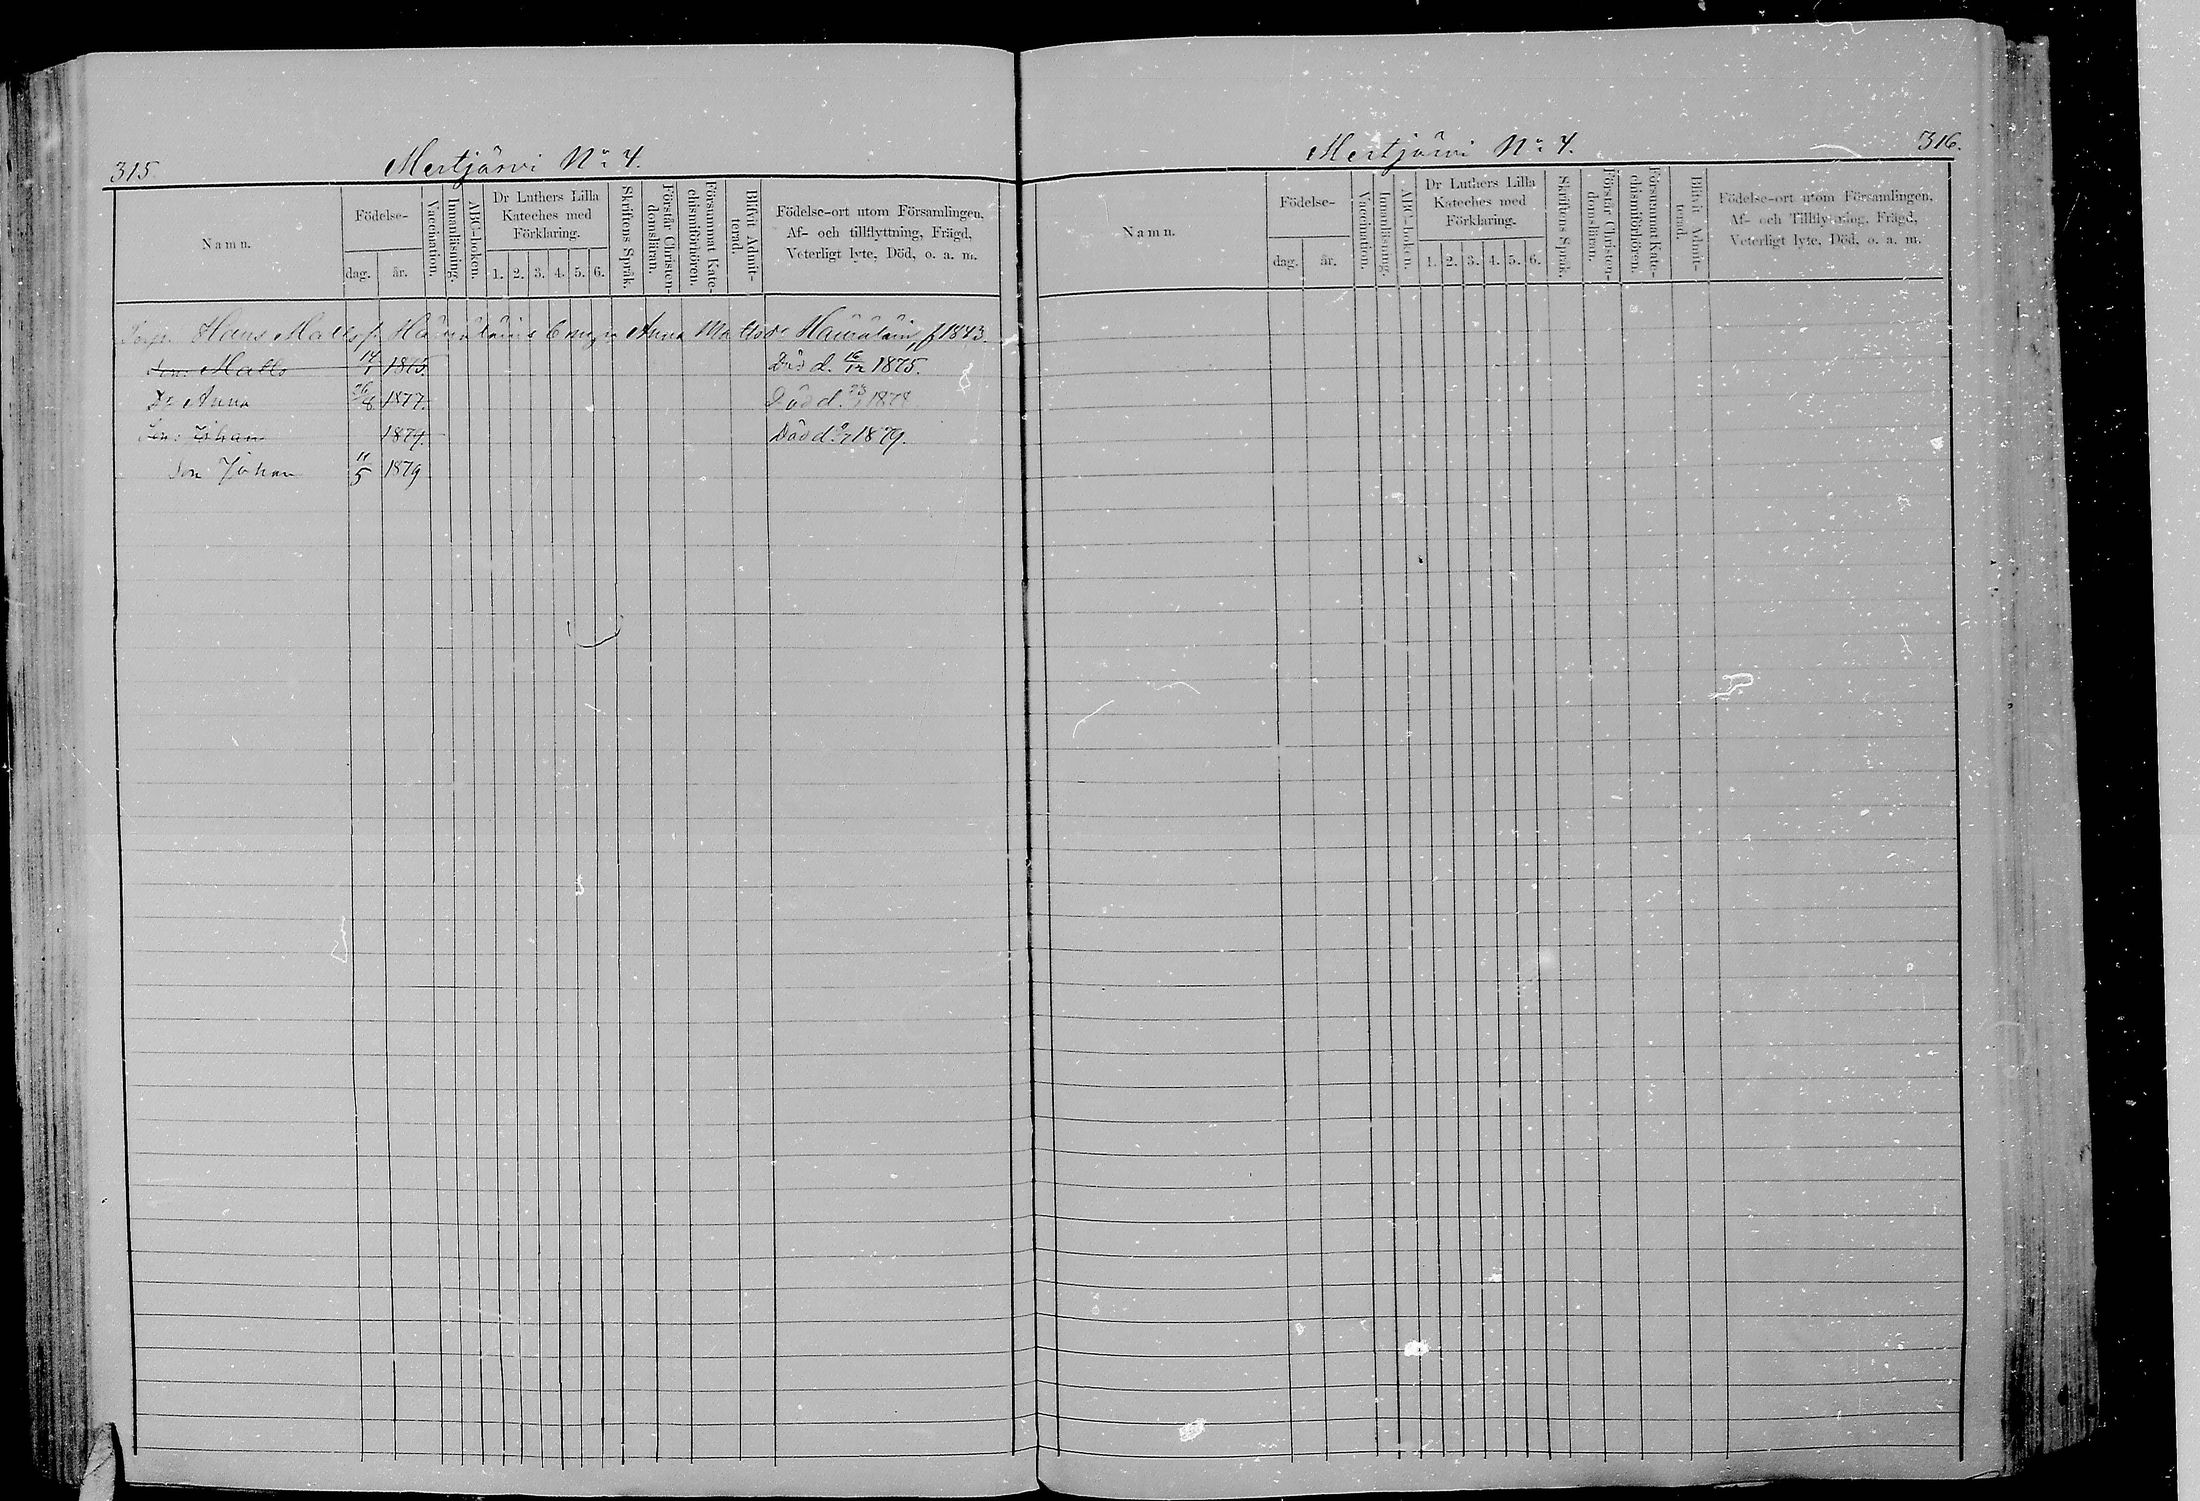 315.
Mertjärvi No 4.
Namn.
Födelse-
dag.
år.
Vaccination.
Innanläsning.
ABC-boken.
Dr Luthers Lilla
Kateches med
Förklaring.
1. 2. 3. 4. 5. 6.
Skriftens Språk.
Förstår Christen-
domsläran.
Försummat Kate-
chismiförhören.
Blifvit Admit-
terad.
Födelse-ort utom Församlingen,
Af- och tillflyttning, Frägd,
Veterligt lyte, Död, o. a. m.
Hans Matts s. Anna Matts dr f 1843.
Son: Matts 14/1 1875. Död d. 16/12 1875.
Dr Anna 26/8 1877. Död d. 1878
Son: Johan 1879. Död d. 1879.
Son Johan 11/5 1879
Mertjärvi No 4.
316.
Namn.
Födelse-
dag.
år.
Vaccination.
Innanläsning.
ABC-boken.
Dr Luthers Lilla
Kateches med
Förklaring.
1. 2. 3. 4. 5. 6.
Skriftens Språk.
Förstår Christen-
domsläran.
Försummat Kate-
chismiförhören.
Blifvit Admit-
terad.
Födelse-ort utom Församlingen,
Af- och Tillflyttning, Frägd,
Veterligt lyte, Död, o. a. m.